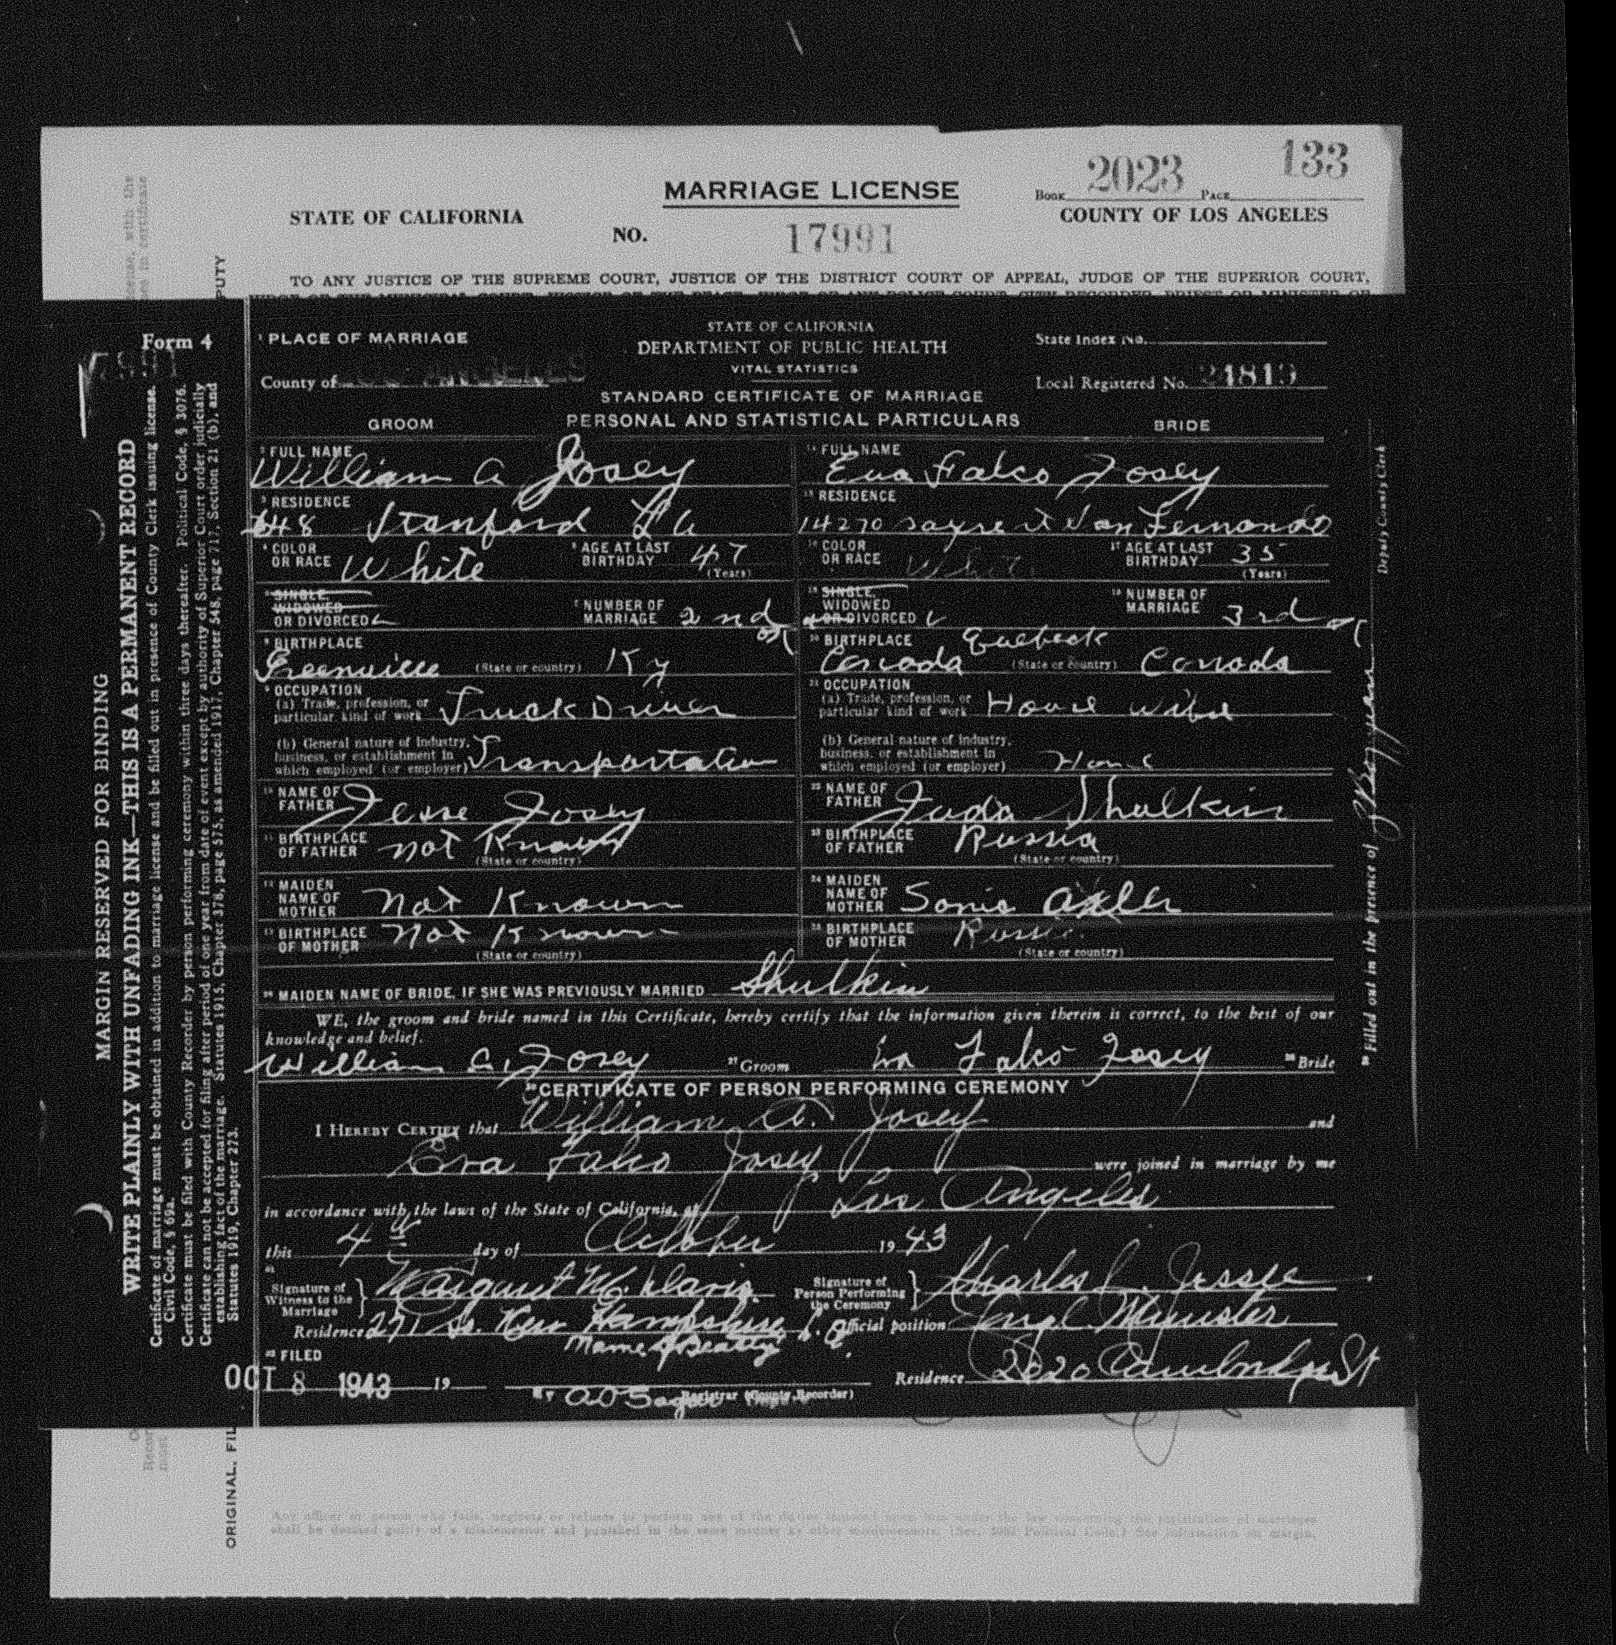 133
2023
MARRIAGE LICENSE
Book Page
STATE OF CALIFORNIA
COUNTY OF LOS ANGELES
NO. 17991
TO ANY JUSTICE OF THE SUPREME COURT, JUSTICE OF THE DISTRICT COURT OF APPEAL, JUDGE OF THE SUPERIOR COURT,
Form 4
1 PLACE OF MARRIAGE
STATE OF CALIFORNIA
DEPARTMENT OF PUBLIC HEALTH
VITAL STATISTICS
State Index No.
County of LOS ANGELES
Local Registered No. 24819
STANDARD CERTIFICATE OF MARRIAGE
GROOM PERSONAL AND STATISTICAL PARTICULARS BRIDE
2 FULL NAME William A Josey
14 FULL NAME Eva Falco Josey
3 RESIDENCE 648 Stanford LA
15 RESIDENCE 14270 Sayre St San Fernando
4 COLOR OR RACE White
5 AGE AT LAST BIRTHDAY 47 (Years)
16 COLOR OR RACE White
17 AGE AT LAST BIRTHDAY 35 (Years)
6 SINGLE, WIDOWED OR DIVORCED
7 NUMBER OF MARRIAGE 2nd
18 SINGLE, WIDOWED OR DIVORCED
19 NUMBER OF MARRIAGE 3rd
8 BIRTHPLACE Greenville (State or country) Ky
20 BIRTHPLACE Quebeck Canada (State or country) Canada
9 OCCUPATION
(a) Trade, profession, or particular kind of work Truck Driver
21 OCCUPATION
(a) Trade, profession, or particular kind of work House Wife
(b) General nature of industry, business, or establishment in which employed (or employer) Transportation
(b) General nature of industry, business, or establishment in which employed (or employer) Home
10 NAME OF FATHER Jesse Josey
22 NAME OF FATHER Juda Shulkin
11 BIRTHPLACE OF FATHER not Known (State or country)
23 BIRTHPLACE OF FATHER Russia (State or country)
12 MAIDEN NAME OF MOTHER Not Known
24 MAIDEN NAME OF MOTHER Sonia Axler
13 BIRTHPLACE OF MOTHER Not Known (State or country)
25 BIRTHPLACE OF MOTHER Russia (State or country)
26 MAIDEN NAME OF BRIDE, IF SHE WAS PREVIOUSLY MARRIED Shulkin
WE, the groom and bride named in this Certificate, hereby certify that the information given therein is correct, to the best of our
knowledge and belief.
William A. Josey 27 Groom Eva Falco Josey 28 Bride
29 CERTIFICATE OF PERSON PERFORMING CEREMONY
I HEREBY CERTIFY that William A. Josey and
Eva Falco Josey were joined in marriage by me
in accordance with the laws of the State of California, at Los Angeles
this 4th day of October 1943
Signature of Witness to the Marriage Margaret M. Davis
Signature of Person Performing the Ceremony Charles L. Jessee
Residence 271 So. New Hampshire, L.A.
Official position
Minister
Mame A Beatty
32 FILED
OCT 8 1943 19
Registrar (County Recorder)
Residence 2020 Cambridge St
MARGIN RESERVED FOR BINDING
WRITE PLAINLY WITH UNFADING INK—THIS IS A PERMANENT RECORD
Certificate of marriage must be obtained in addition to marriage license and be filled out in presence of County Clerk issuing license.
Civil Code, § 69a.
Certificate must be filed with County Recorder by person performing ceremony within three days thereafter. Political Code, § 3076.
Certificate can not be accepted for filing after period of one year from date of event except by authority of Superior Court order judicially
establishing fact of the marriage. Statutes 1915, Chapter 378, page 575, as amended 1917, Chapter 548, page 717, Section 21 (b), and
Statutes 1919, Chapter 273.
PUTY
ORIGINAL, FIL
Filled out in the presence of
Deputy County Clerk
Any officer or person who fails, neglects or refuses to perform any of the duties imposed upon him under the law concerning the registration of marriages
shall be deemed guilty of a misdemeanor and punished in the same manner as other misdemeanors.